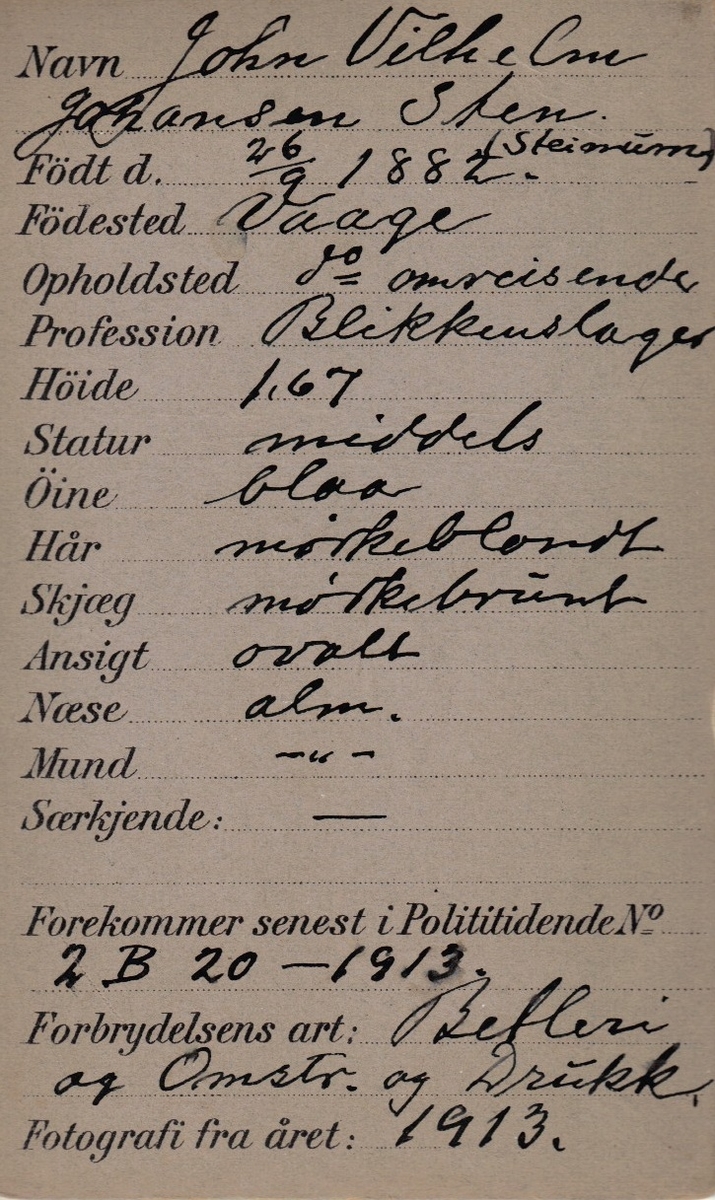 Navn John Vilhelm
Johansen Sten.
(Steinum)
Födt d. 26/9 1882.
Födested Vaage
Opholdsted do omreisende
Profession Blikkenslager
Höide 1.67
Statur middels
Öine blaa
Hår mørkeblondt
Skjæg mørkebrunt
Ansigt ovalt
Næse alm.
Mund -"-
Særkjende: —
Forekommer senest i Polititidende No
2 B 20 – 1913.
Forbrydelsens art: Betleri
og Omstr. og Drukk.
Fotografi fra året: 1913.